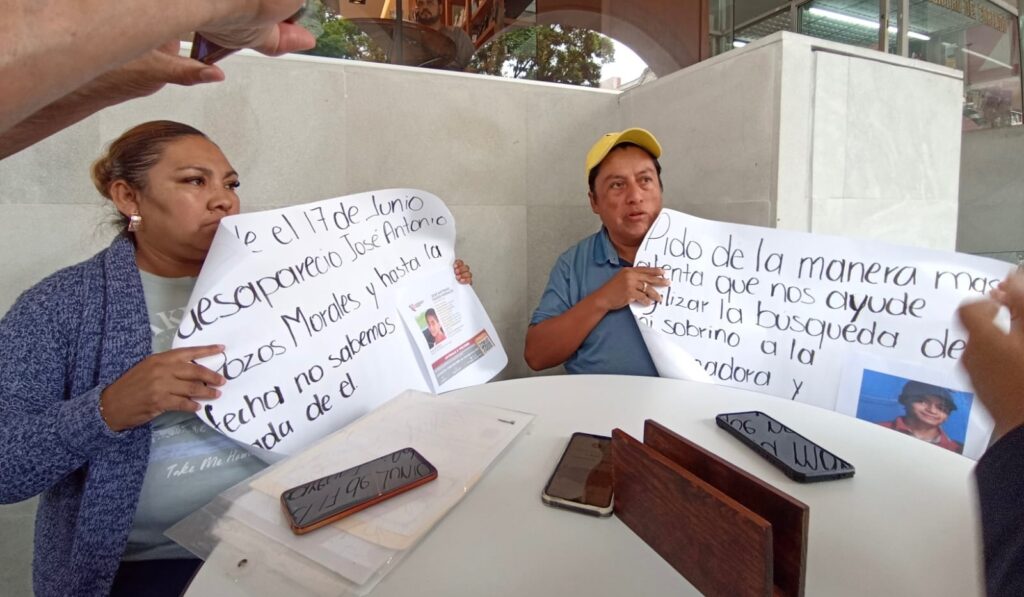 el 17 de Junio
desaparecio José Antonio
Pozos Morales y hasta la
fecha no sabemos
nada de el.
Pido de la manera mas
atenta que nos ayude
agilizar la busqueda de
mi sobrino a la
nadora y
Take Me Home